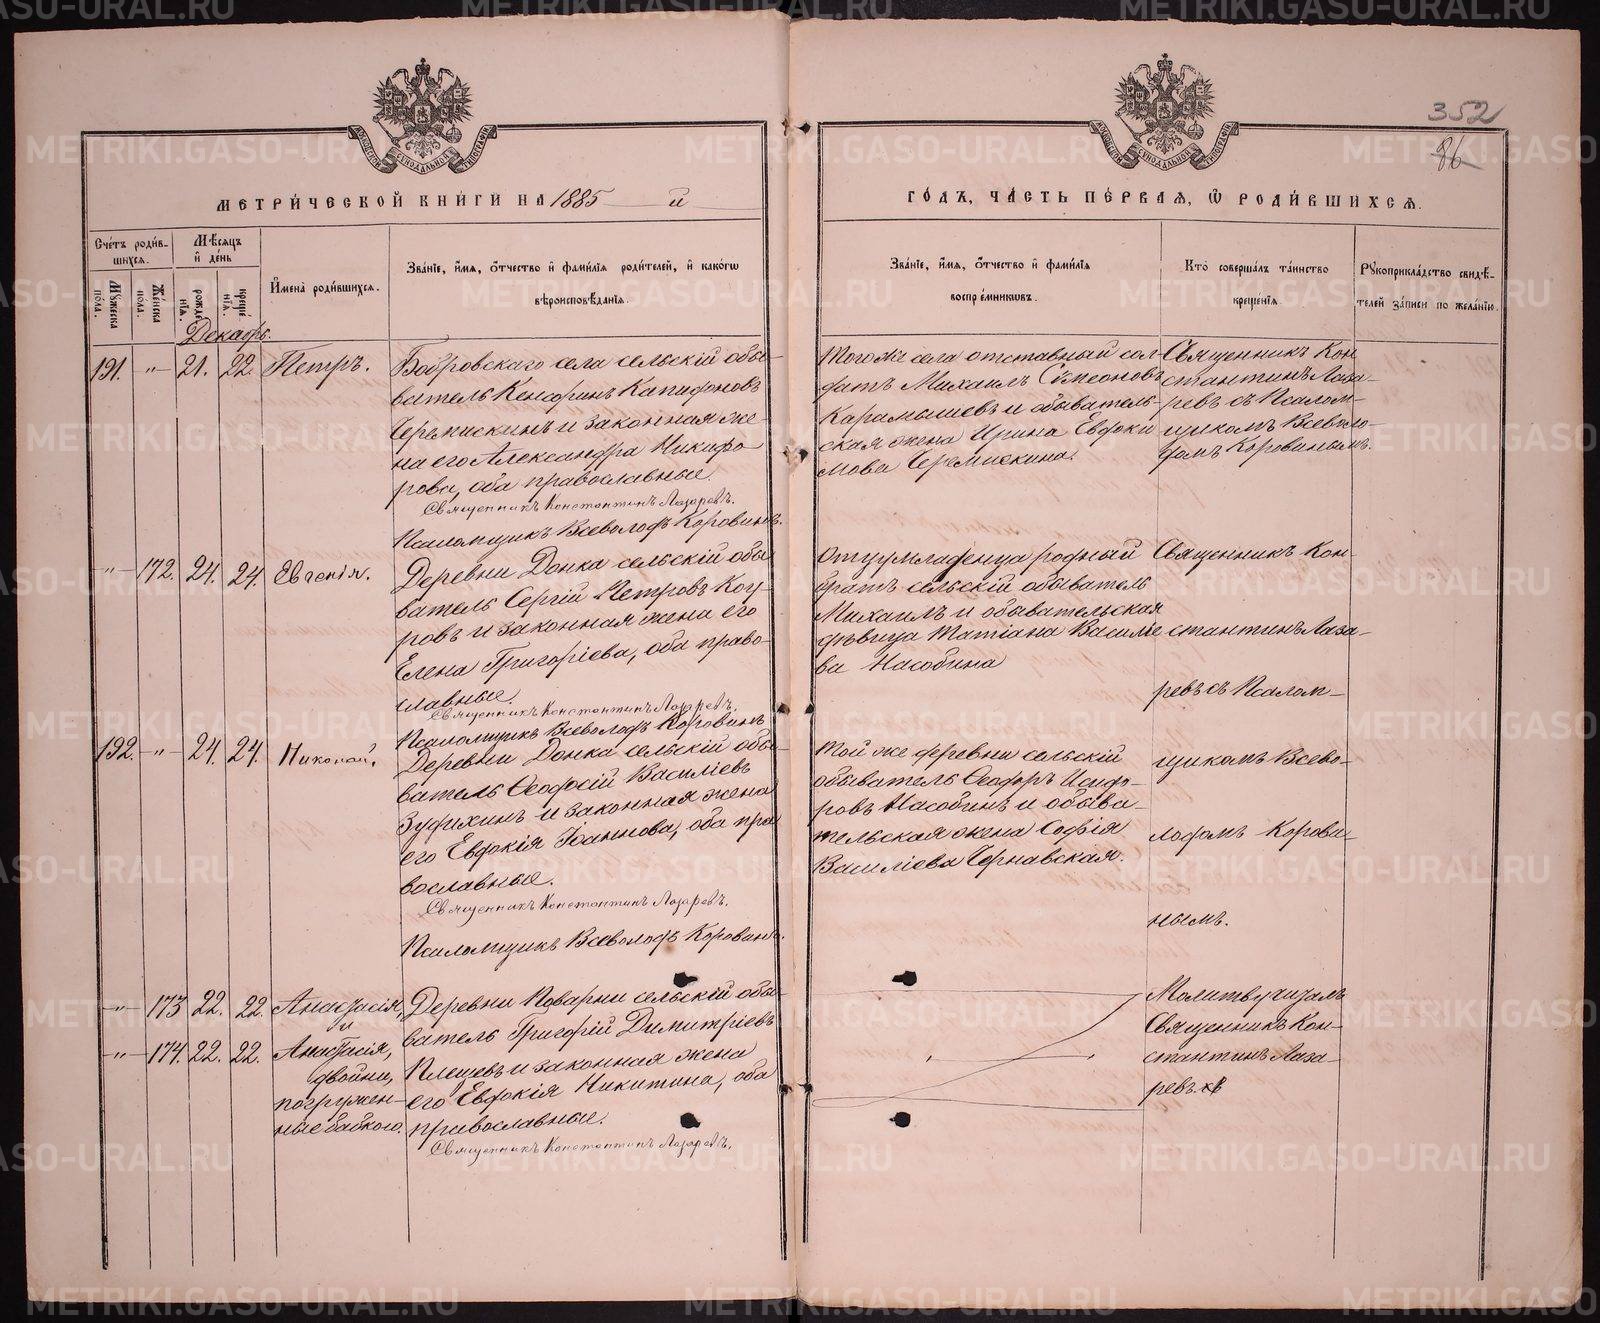 352
86
МОСКОВСКОЙ СѶНОДАЛЬНОЙ ТИПОГРАФІИ
МОСКОВСКОЙ СѶНОДАЛЬНОЙ ТИПОГРАФІИ
МЕТРИ́ЧЕСКОЙ КНИ́ГИ НА 1885 й
ГО́ДЪ, ЧА́СТЬ ПЕ́РВАЯ, Ѡ РОДИ́ВШИХСѦ.
Сче́тъ роди́в-
шихсѧ.
Мꙋжеска по́ла.
Же́нска по́ла.
Мѣ́сѧцъ и҆ де́нь
рожде́нїѧ.
креще́нїѧ.
И҆мена̀ роди́вшихсѧ.
Зва́нїе, и҆́мѧ, ѻ҆́тчество и҆ фами́лїѧ роди́телей, и҆ како́гѡ
вѣроисповѣ́данїѧ.
Зва́нїе, и҆́мѧ, ѻ҆́тчество и҆ фами́лїѧ
воспрїе́мникѡвъ.
Кто̀ соверша́лъ та́инство
креще́нїѧ.
Рꙋкоприкла́дство свидѣ́-
телей за́писи по жела́нїю.
Декабрь.
191. -„- 21. 22. Петръ.
Бобровскаго села сельскій обы-
ватель Кенсоринъ Капитоновъ
Черемискинъ и законная же-
на его Александра Никифо-
рова, оба православные.
Священникъ Константинъ Лазаревъ.
Псаломщикъ Всеволодъ Коровинъ.
Тогоже села отставный сол-
датъ Михаилъ Сѵмеоновъ
Карамышевъ и обыватель-
ская жена Ирина Евдоки
мова Черемискина.
Священникъ Кон
стантинъ Лаза-
ревъ съ Псалом-
щикомъ Всеволо-
домъ Коровинымъ.
-„- 172. 24. 24. Евгенія.
Деревни Донка сельскій обы
ватель Сергій Петровъ Коу-
ровъ и законная жена его
Елена Григоріева, оба право-
славные.
Священникъ Константинъ Лазаревъ.
Псаломщикъ Всеволодъ Коровинъ
Отцумладенца родный
братъ сельскій обыватель
Михаилъ и обывательская
дѣвица Татіана Василіе
ва Насобина
Священникъ Кон-
стантинъ Лаза-
ревъ съ Псалом-
щикомъ Всево-
лодомъ Корови-
нымъ.
192. -„- 24. 24. Николай.
Деревни Донка сельскій обы-
ватель Ѳеодосій Василіевъ
Зудихинъ и законная жена
его Евдокія Іоаннова, оба пра
вославные.
Священникъ Константинъ Лазаревъ.
Псаломщикъ Всеволодъ Коровинъ.
Той же деревни сельскій
обыватель Ѳеодоръ Исидо-
ровъ Насобинъ и обыва-
тельская жена Софія
Василіева Чернавская.
-„- 173 22. 22. Анастасія,
и
-„- 174. 22. 22. Анастасія,
двойни,
погружен-
ные бабкою.
Деревни Поварни сельскій обы-
ватель Григорій Димитріевъ
Плещевъ и законная жена
его Евдокія Никитина, оба
православные.
Священникъ Константинъ Лазаревъ.
Молитву читалъ
Священникъ Кон-
стантинъ Лаза-
ревъ.
METRIKI.GASO-URAL.RU